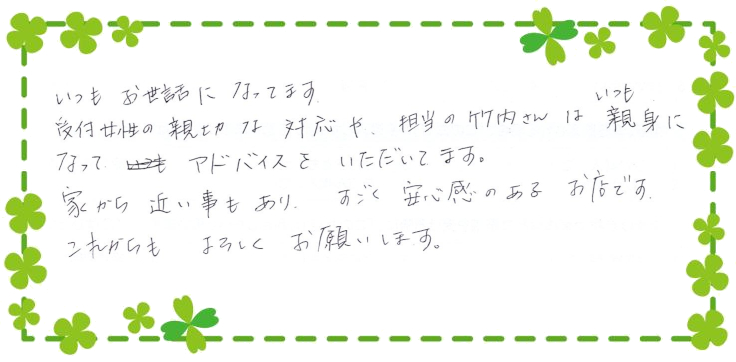 いつも お世話に なってます.
受付女性の 親切な 対応や、担当の竹内さんは いつも 親身に
なって アドバイスを いただいてます。
家から 近い事もあり、 すごく 安心感のある お店です.
これからも よろしく お願いします。